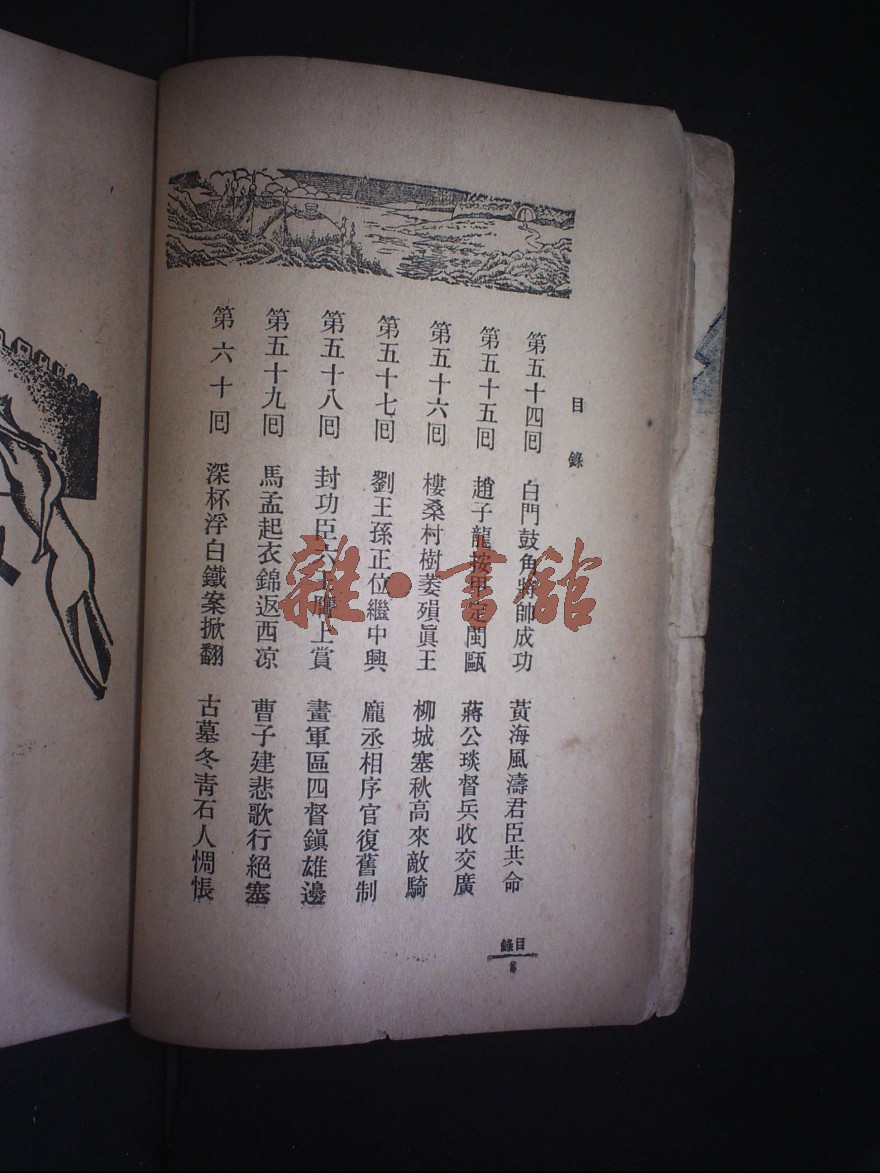 目錄
第五十四囘 白門鼓角將帥成功 黃海風濤君臣共命
第五十五囘 趙子龍按甲定閩甌 蔣公琰督兵收交廣
第五十六囘 樓桑村樹萎殞眞王 柳城塞秋高來敵騎
第五十七囘 劉王孫正位繼中興 龐丞相序官復舊制
第五十八囘 封功臣六大膺上賞 畫軍區四督鎭雄邊
第五十九囘 馬孟起衣錦返西凉 曹子建悲歌行絕塞
第六十囘 深杯浮白鐵案掀翻 古墓冬靑石人惆悵
目錄
雜·書舘